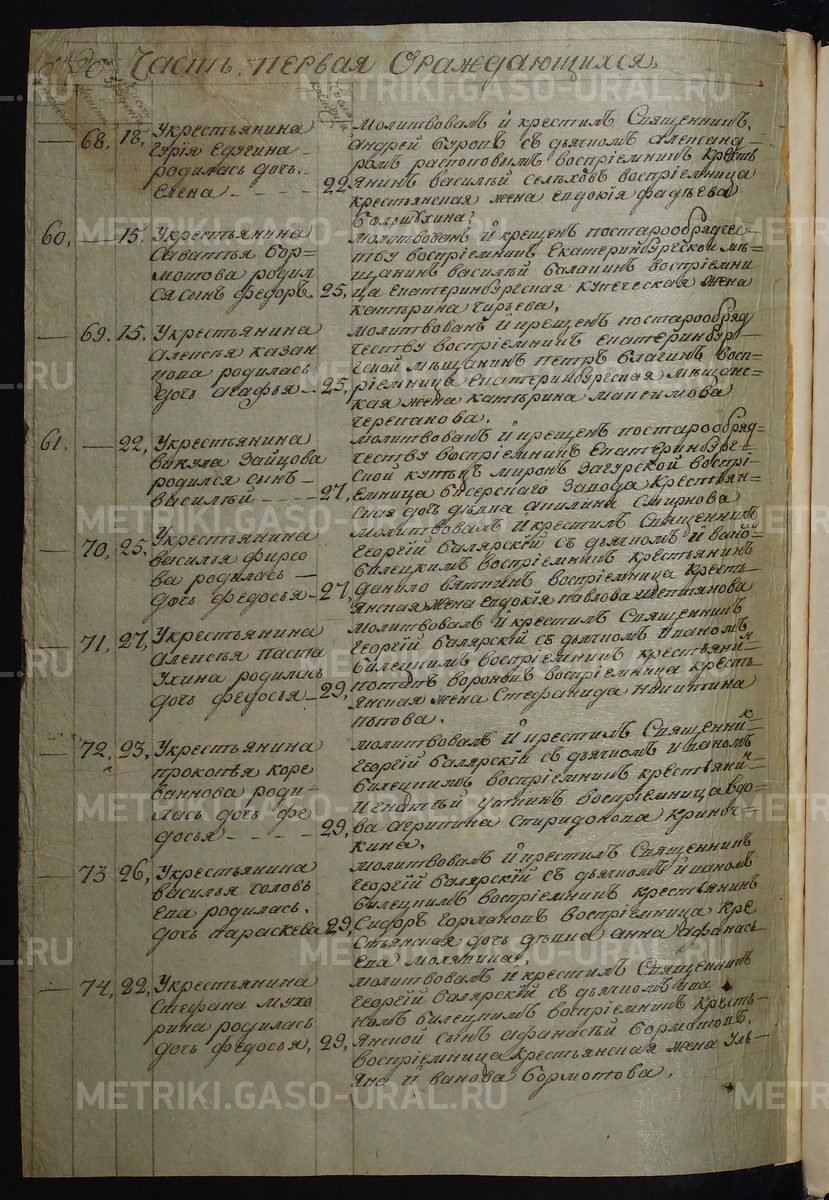 Часть первая Ораждающихся
68. 18, Укрестьянина
Гурія Едугина
родилась дочь.
Елена 22
Молитвовалъ й крестилъ Священникъ,
Андрей Буровъ съ дьячкомъ Александ-
ромъ распоповымъ воспріемникъ кресть
янинъ василъй Селъховъ воспріемница
крестьянская жена евдокія фадъева
60, 15, Укрестьянина
Саватъя бор=
мотова родил
ся сынъ федоръ. 25,
молитвованъ й крещенъ постарообрядчес-
тву воспріемникъ Екатеринбургской мъ=
щанинъ василъй балакинъ воспріемни
ца Екатеринбурсная купеческая жена
катърина чирьева,
69. 15. Укрестьянина
Алексъя казан
цова родилась
дочь агафья 25,
молитвованъ й крещенъ постарообряд
честву воспріемникъ Екатеринбур-
гской мъщанинъ петръ благинъ восп-
ріемница Екатеринбургская мъщанс-
кая жена катърина максимова
черепанова.
61. 22, Укрестьянина
викула Зайцова
родился сынъ
василъй 27,
молитвованъ й крещенъ постарообряд=
честву воспріемникъ Екатеринбургс-
ской купецъ миронъ Загурской воспрі-
емница бисерскаго Завода крестьян-
ская дочь дъвка акилина Смирнова
70, 25. Укрестьянина
василья фирсо
ва родилась
дочь федосья 27,
молитвовалъ й крестилъ Священникъ
георгій балярскій съ дьячкомъ й вано
билецкимъ воспріемникъ крестьянинъ
данило вяткинъ воспріемница кресть
янская жена евдокія павлова
71, 27, Укрестьянина
Алексъя паста
ухина родилась
дочь федосья 29,
молитвовалъ й крестилъ Священникъ
георгій балярскій съ дьячкомъ иваномъ
билецкимъ воспріемникъ крестьяни
потапъ вороновъ воспріемница кресть
янская жена Стефанида никитина
попова.
72, 23, Укрестьянина
прокопъя коре
ванова роди-
лась дочь фе
досья 29,
молитвовалъ й крестилъ Священни
георгій балярскій съ дьячкомъ иваномъ
билецкимъ воспріемникъ крестьяни
игнатъй уткинъ воспріемница вдо-
ва акритина Спиридонова кривоч-
кина.
73 26, Укрестьянина
василья Соловь
ева родилась.
дочь параскева 29,
молитвовалъ й крестилъ Священникъ
георгій балярскій съ дьячкомъ иваномъ
билецкимъ воспріемникъ крестьянинъ
Сидоръ горлановъ воспріемница кре
стьянская дочь дъвка анна афанась
ева молякина,
74, 22, Укрестьянина
Стефана мухо
рина родилась
дочь федосья, 29,
молитвовалъ й крестилъ Священникъ
георгій балярскій съ дьячкомъ ива
номъ билецкимъ воспріемникъ кресть-
янской сынъ афанасъй бормотовъ,
воспріемница крестьянская жена уль-
яна й ванова бормотова.
METRIKI.GASO-URAL.RU